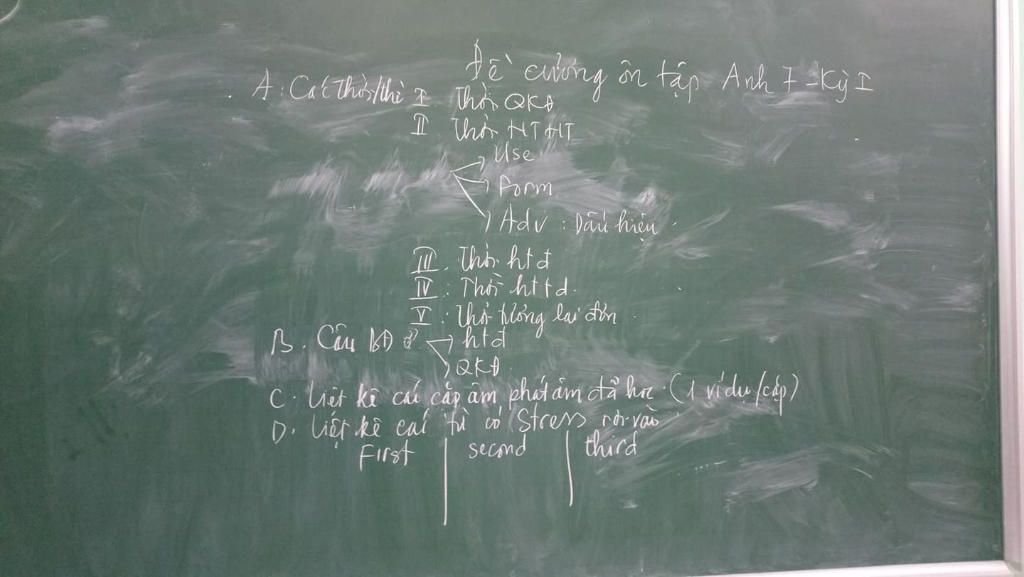 Đề cương ôn tập Anh 7 - Kỳ I
A: Các Thời/thì I Thời QKĐ
II Thời HTHT
Use
Form
Adv : Dấu hiệu
III. Thời htđ
IV. Thời httd.
V. Thời tương lai đơn.
B. Câu BĐ ở htđ
QKĐ
C. Liệt kê các cặp âm phát âm đã học. (1 ví dụ/cặp)
D. Liệt kê các từ có Stress rơi vào
First second third